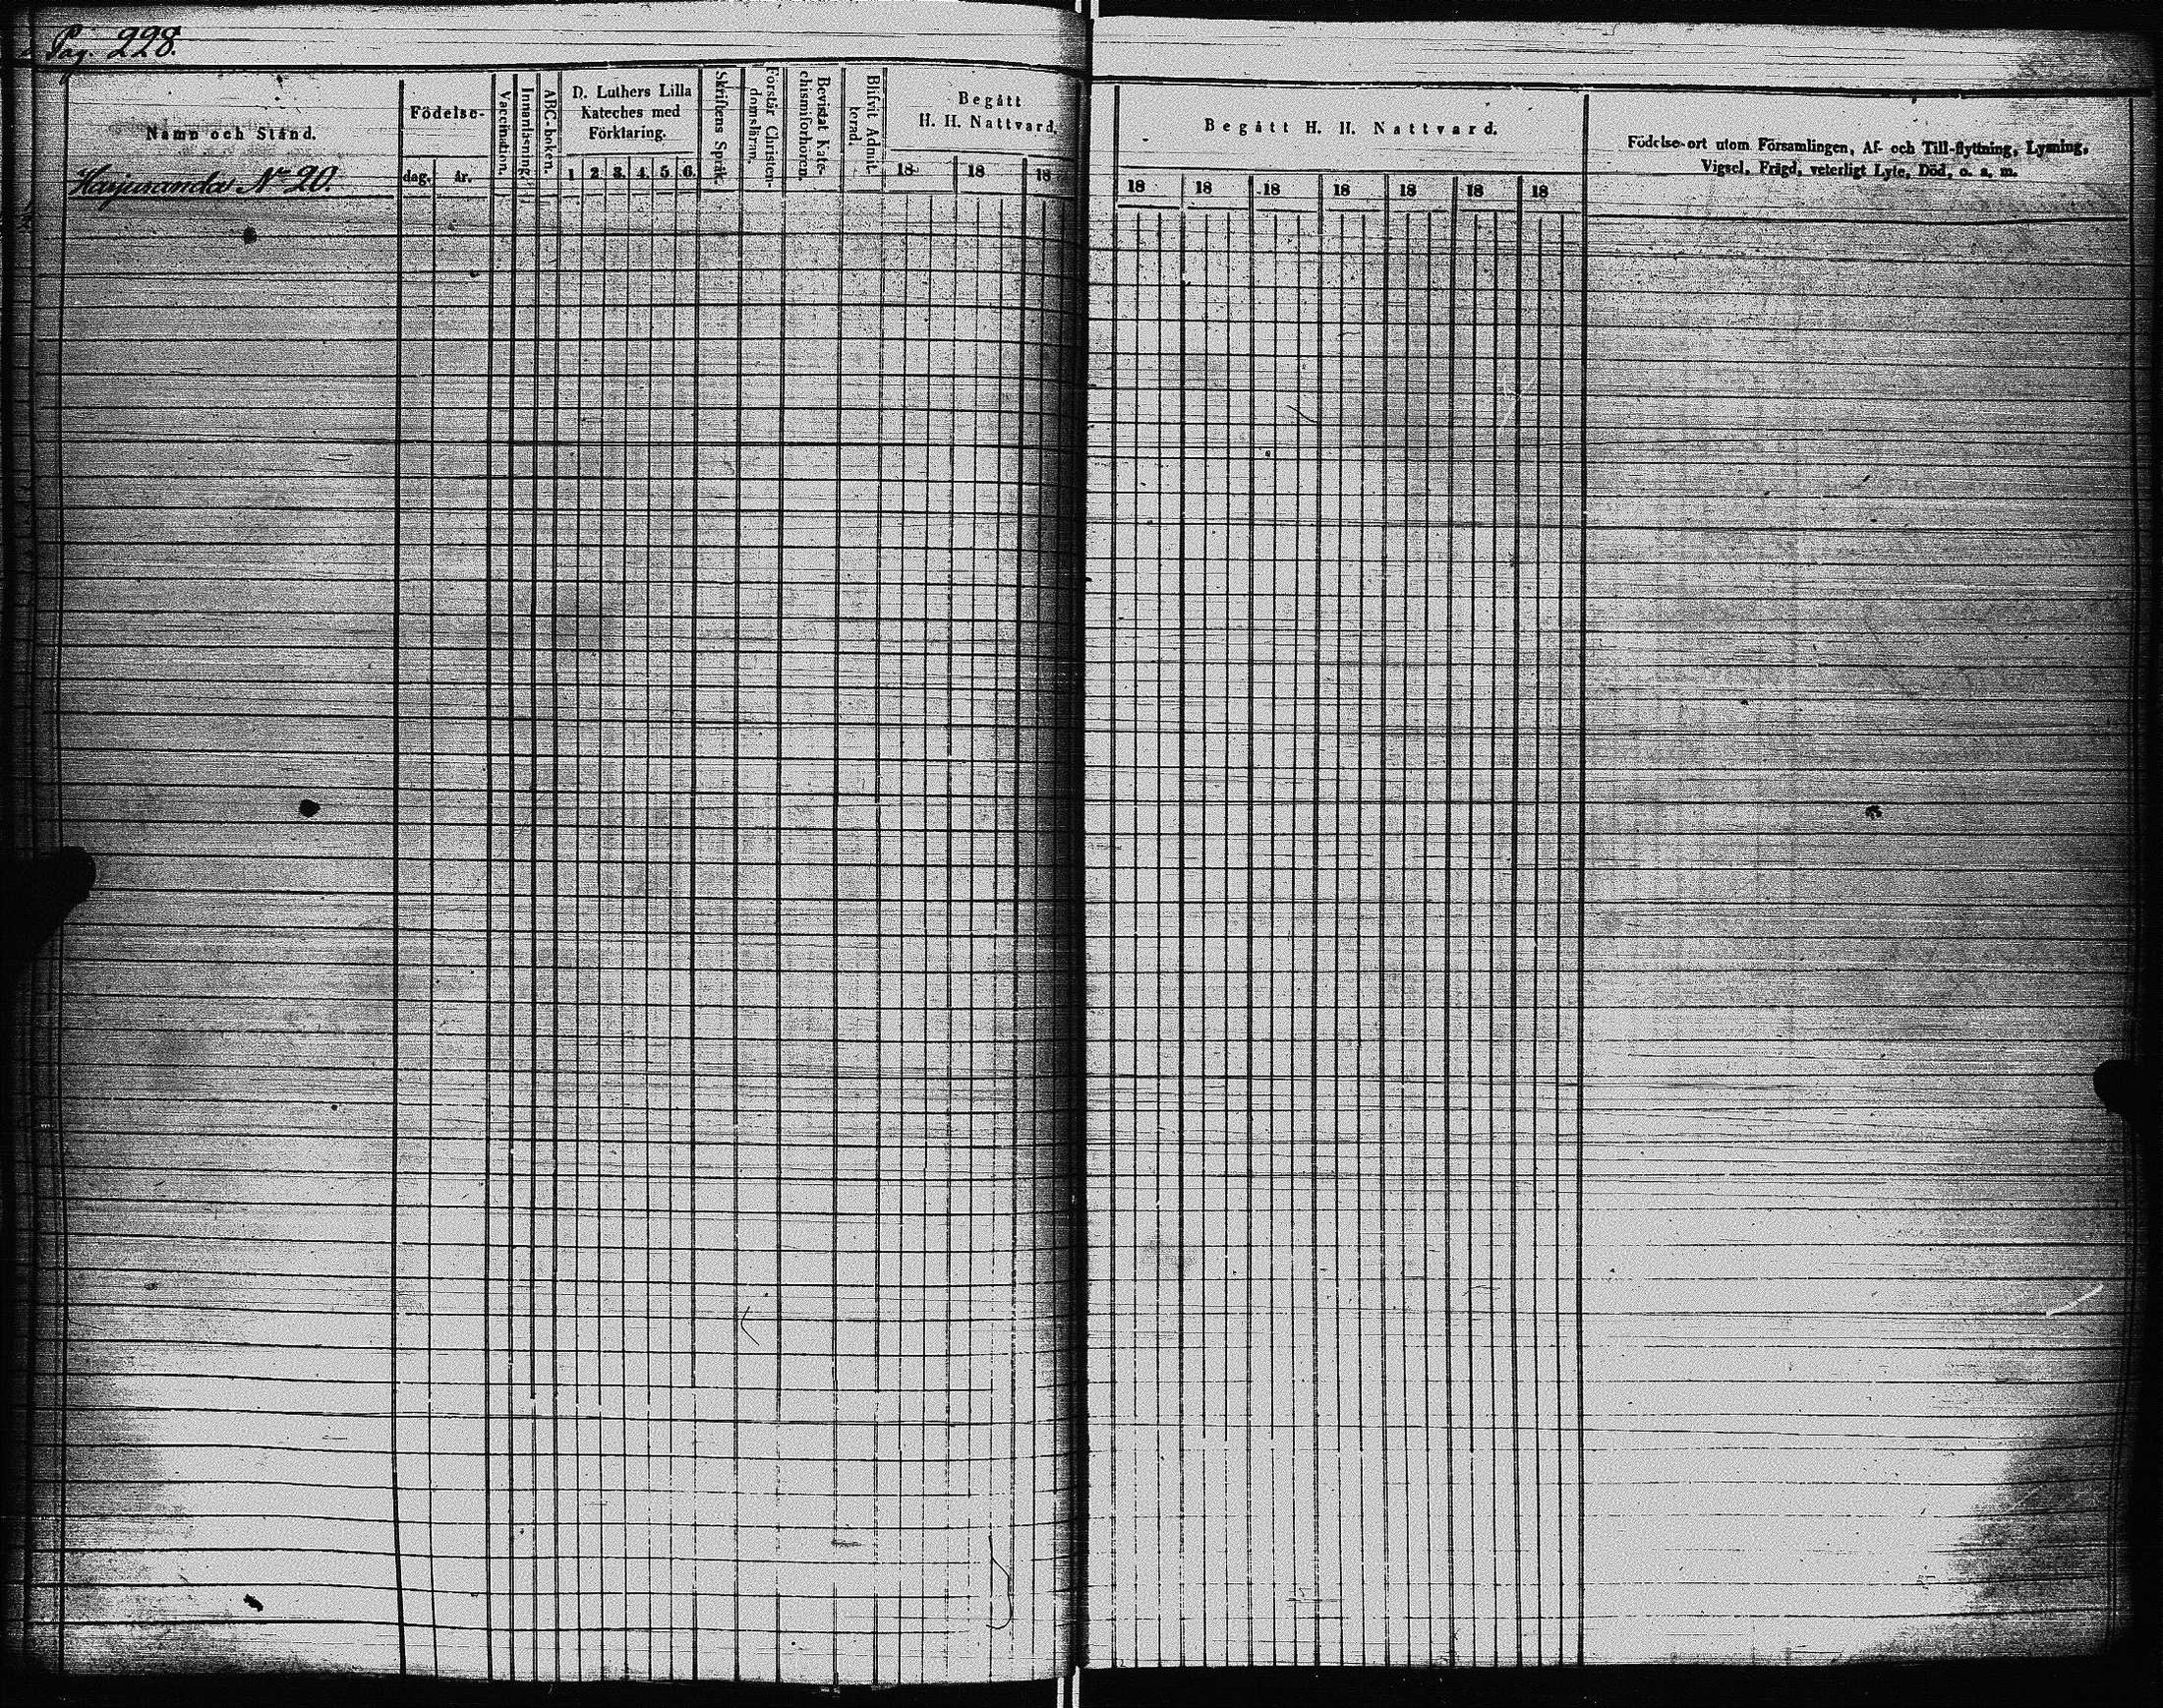 Pag. 228.
Namn och Stånd.
Harjuranda No 20.
Födelse-
dag. år.
Vaccination.
Innanläsning.
ABC-boken.
D. Luthers Lilla
Kateches med
Förklaring.
1 2 3. 4. 5 6.
Skriftens Språk.
Förstår Christen-
domsläran.
Bevistat Kate-
chismiförhören.
Blifvit Admit-
terad.
Begått
H. H. Nattvard.
18 18 18
Begått H. H. Nattvard.
18 18 18 18 18 18 18
Födelse-ort utom Församlingen, Af- och Till-flyttning, Lysning,
Vigsel, Frägd, veterligt Lyte, Död, o. s. m.